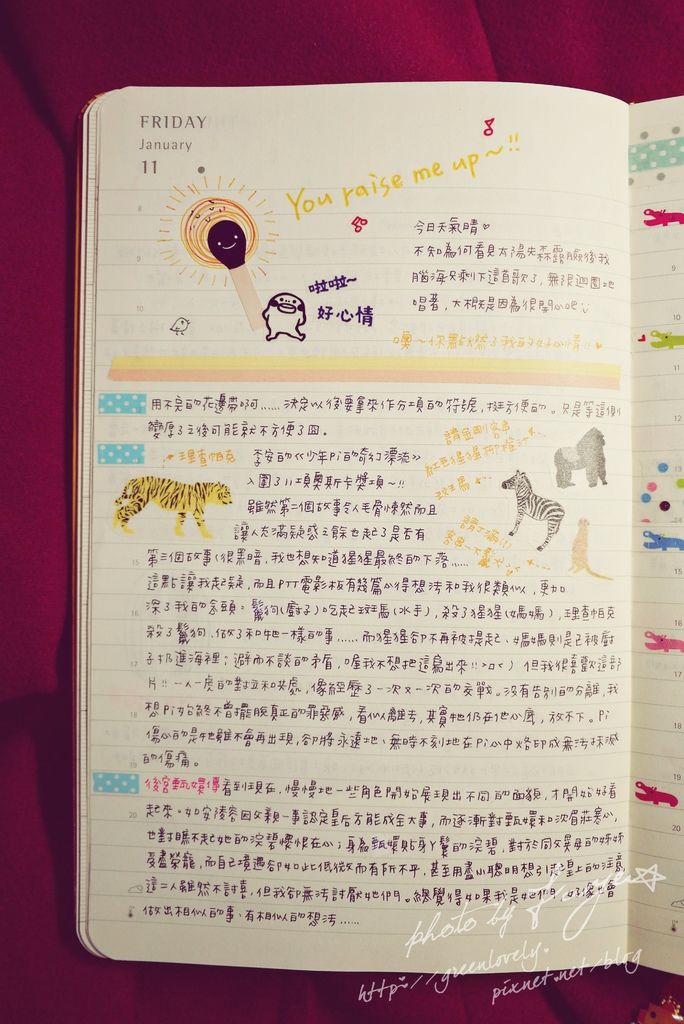 FRIDAY
January
11
You raise me up~!!
8
今日天氣晴♡
9
不知為何看見太陽
後我
腦海只剩下這首歌了,無限迴圈地
唱著,大概是因為很開心吧
啦啦~
好心情
10
噢~你點燃了我的好心情!!♥
用不完的花邊帶啊……決定以後要拿來作分項的符號,挺方便的。只是等這側
變厚了之後可能就不方便了囧。
理查帕克
李安的《少年Pi的奇幻漂流》
入圍了11項奧斯卡獎項~!!
雖然第二個故事令人毛骨悚然而且
讓人充滿疑惑之餘也起了是否有
請金剛客串
紅毛猩猩
斑馬
15
第三個故事(很黑暗,我也想知道猩猩最終的下落……
這點讓我起疑,而且PTT電影板有幾篇心得想法和我很類似,更加
16
深了我的念頭:鬣狗(廚子)吃起斑馬(水手),殺了猩猩(媽媽),理查帕克
殺了鬣狗、做了和牠一樣的事……而猩猩卻不再被提起、媽媽則是已被廚
17
子扔進海裡;避而不談的矛盾,喔我不想把這寫出來!!>"<)但我很喜歡這部
片!!一人一虎的對立和共處,像經歷了一次又一次的交戰。沒有告別的分離,我
18
想Pi始終不曾擺脫真正的罪惡感,看似離去,其實牠仍在他心底,放不下。Pi
傷心的是牠雖不會再出現,卻將永遠地、無時不刻地在Pi心中烙印成無法抹滅
19
的傷痛。
後宮甄嬛傳看到現在,慢慢地一些角色開始展現出不同的面貌,才開始好看
20
起來。如安陵容因父親一事認定皇后方能成全大事,而逐漸對甄嬛和沈眉莊寒心,
也對瞧不起她的浣碧懷恨在心;身為甄嬛貼身丫鬟的浣碧,對於同父異母的姊姊
受盡榮寵,而自己境遇卻如此低微而有所不平,甚至用盡小聰明想引起皇上的注意
這二人雖然不討喜,但我卻無法討厭她們。總覺得如果我是她們,好像也會
做出相似的事、有相似的想法……
9
10
11
12
13
14
15
16
17
18
19
20
photo by
http://greenlovely.
pixnet.net/blog